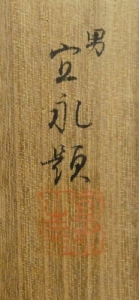 男
宜永題